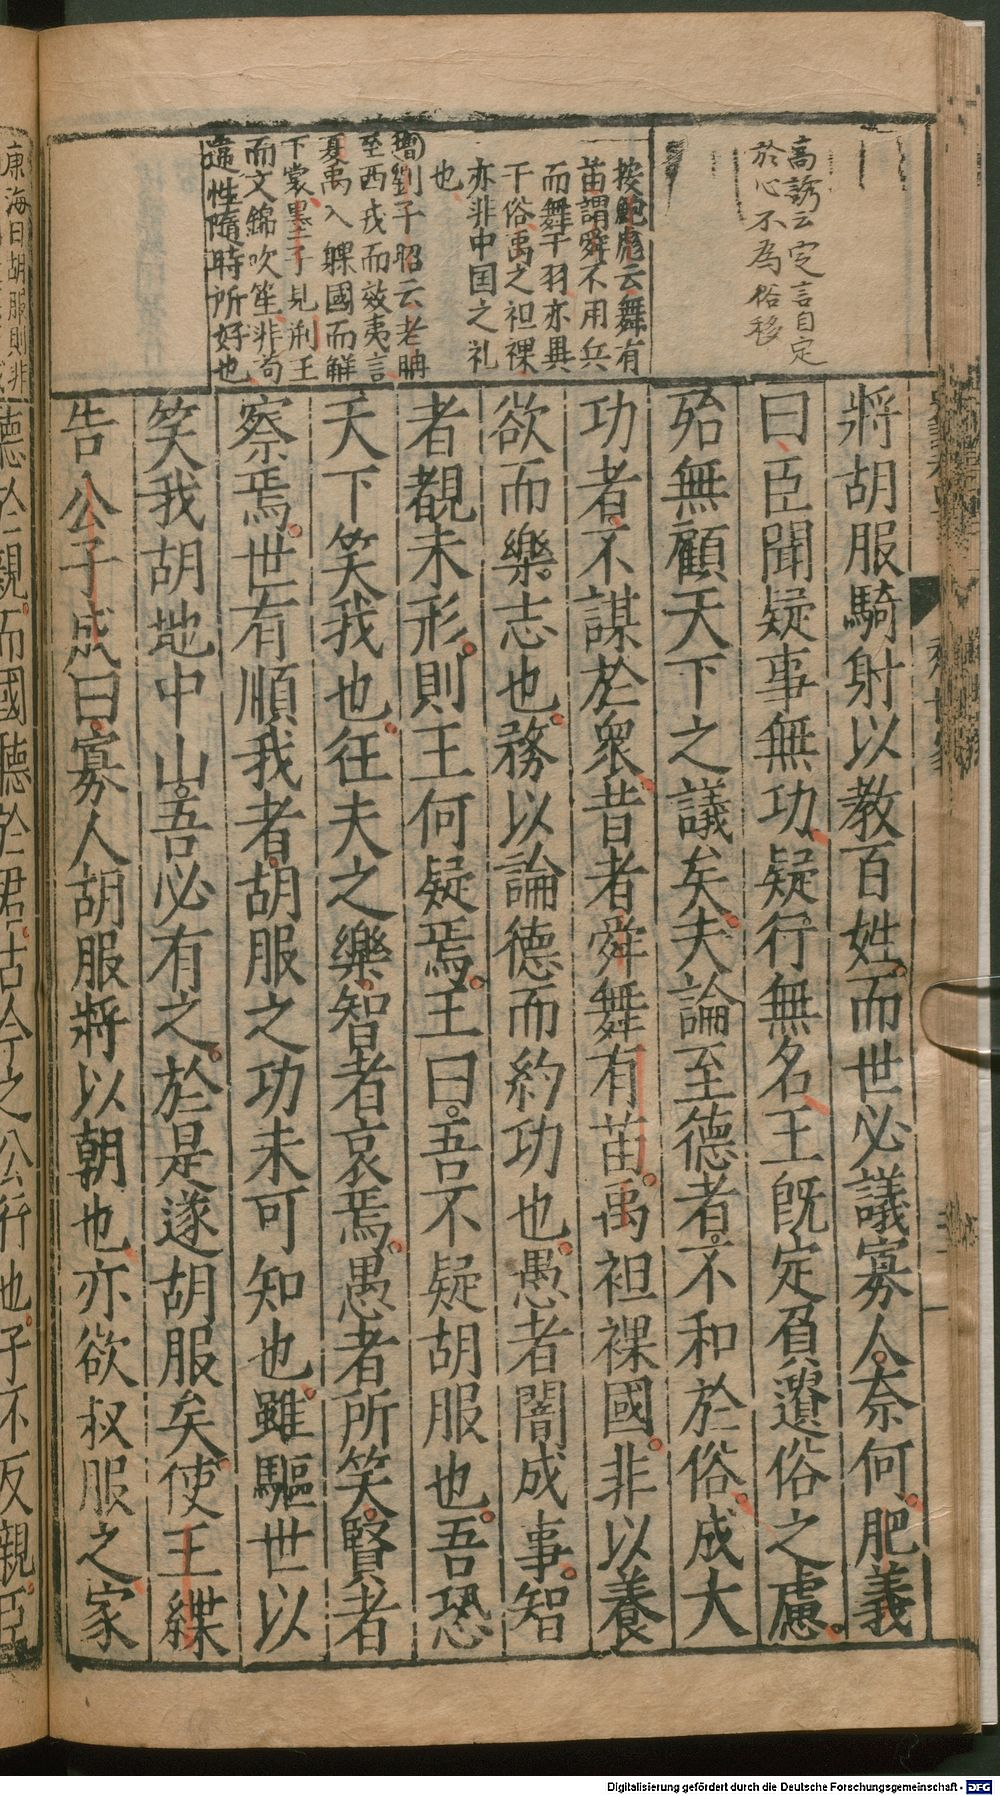 高誘云定言自定
於心不為俗移
按鮑彪云舞有
苗謂舜不用兵
而舞干羽亦異
于俗禹之袒裸
亦非中国之礼
也
劉子昭云老聃
至西戎而效夷言
夏禹入躶國而解
下裳墨子見荊王
而文錦吹笙非苟
違性隨時所好也
將胡服騎射以教百姓而世必議寡人奈何肥義
曰臣聞疑事無功疑行無名王既定負遺俗之慮
殆無顧天下之議矣夫論至德者不和於俗成大
功者不謀於衆昔者舜舞有苗禹袒裸國非以養
欲而樂志也務以論德而約功也愚者闇成事智
者覩未形則王何疑焉王曰吾不疑胡服也吾恐
天下笑我也狂夫之樂智者哀焉愚者所笑賢者
察焉世有順我者胡服之功未可知也雖驅世以
笑我胡地中山吾必有之於是遂胡服矣使王緤
告公子成曰寡人胡服將以朝也亦欲叔服之家
康海曰胡服則非
聽於親而國聽於君古今之公行也子不反親臣
Digitalisierung gefördert durch die Deutsche Forschungsgemeinschaft - DFG